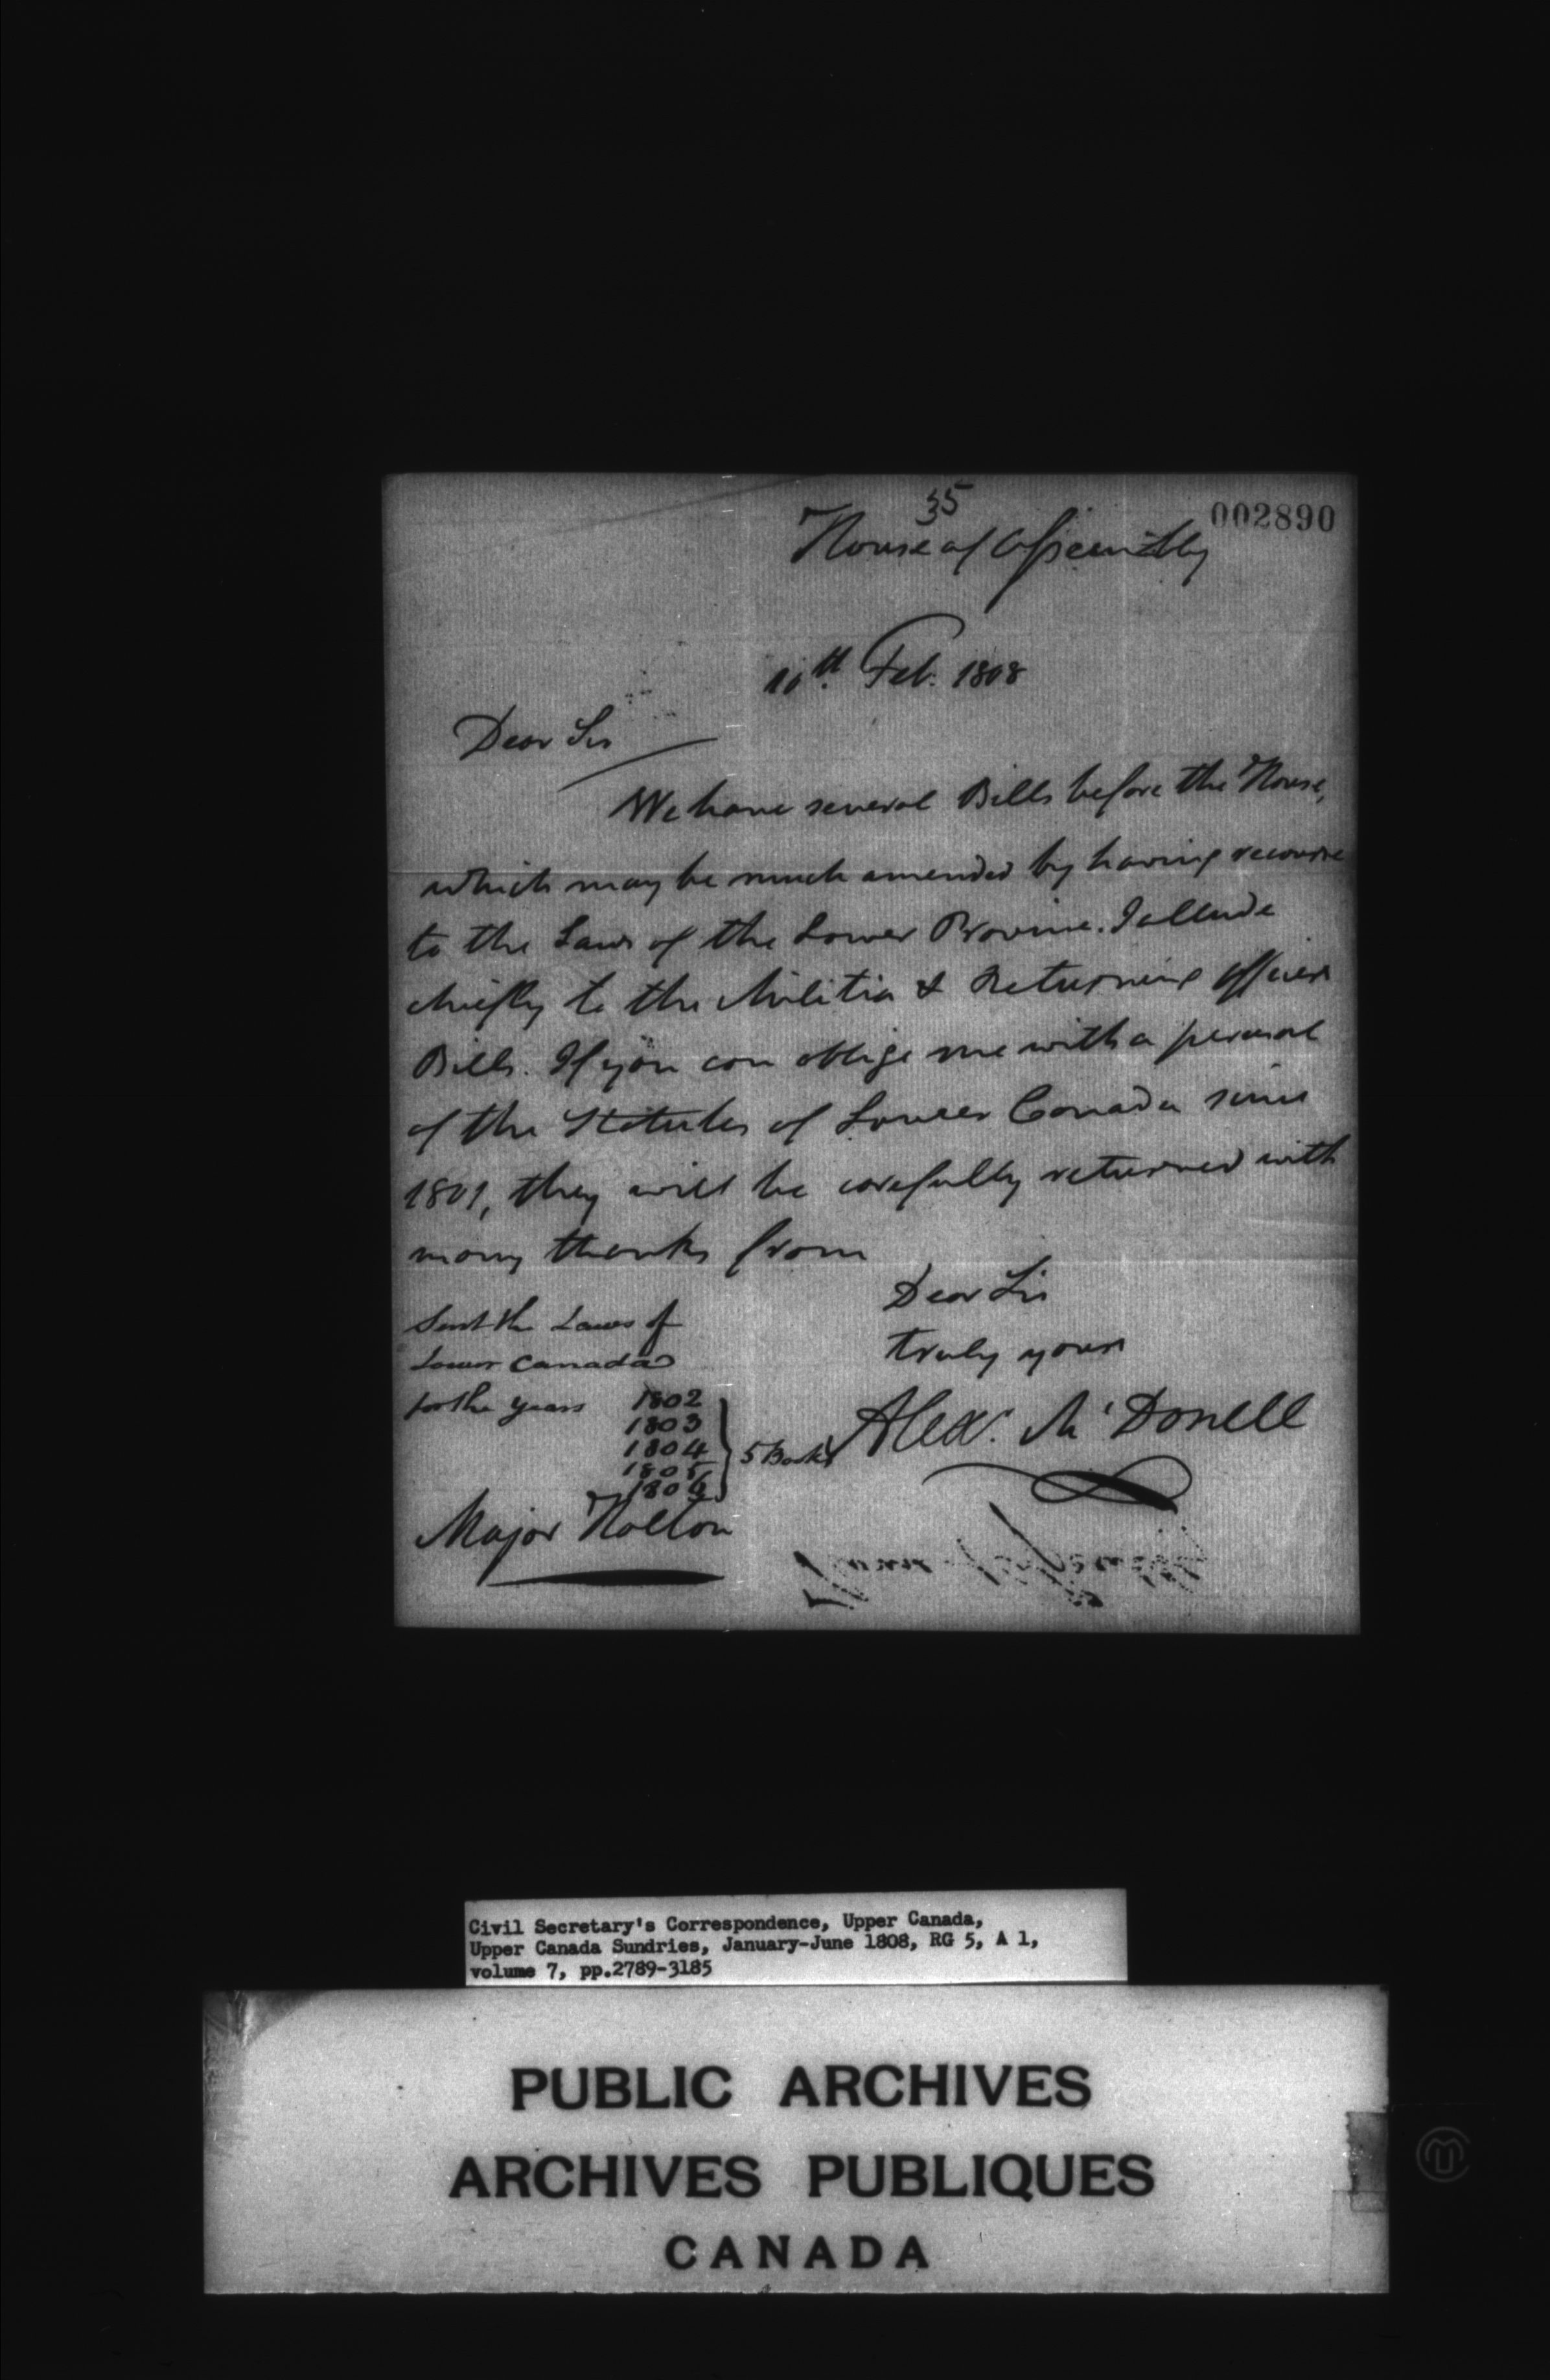 35
002890
House of Assembly
10th Feb. 1808
Dear Sir
We have several Bills before the House,
which may be much amended by having recourse
to the Laws of the Lower Province. I allude
chiefly to the Militia & Returning officers
Bills. If you can oblige me with a perusal
of the Statutes of Lower Canada since
1801, they will be carefully returned with
many thanks from
Dear Sir
truly yours
Alex. McDonell
Sent the Laws of
Lower Canada
for the years 1802
1803
1804
1805
1806
5 Books
Major Halton
Civil Secretary's Correspondence, Upper Canada,
Upper Canada Sundries, January-June 1808, RG 5, A 1,
volume 7, pp.2789-3185
PUBLIC ARCHIVES
ARCHIVES PUBLIQUES
CANADA